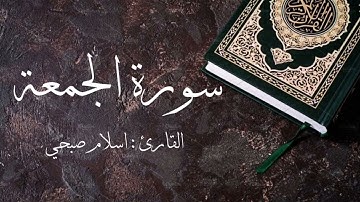 سورة الجمعة
القارئ : اسلام صبحي